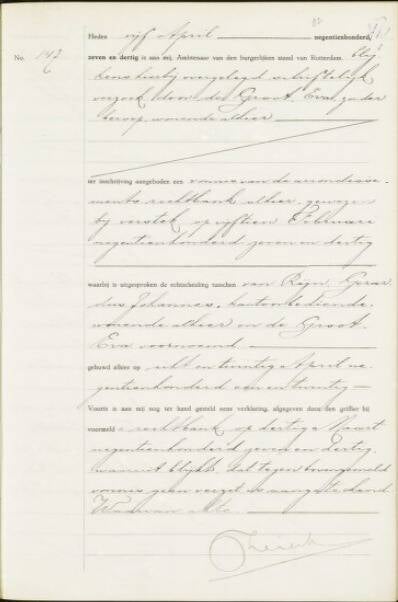 Heden vijf April negentienhonderd
No. 142 zeven en dertig is aan mij, Ambtenaar van den burgerlijken stand van Rotterdam, blij-
kens hierbij overgelegd schriftelijk
verzoek door de Groot, Eva, zonder
beroep, wonende alhier
ter inschrijving aangeboden een vonnis van de arrondisse-
ments rechtbank alhier, gewezen
bij verstek op vijftien Februari
negentienhonderd zeven en dertig
waarbij is uitgesproken de echtscheiding tusschen van Rijn, Gerar-
dus Johannes, kantoorbediende,
wonende alhier en de Groot,
Eva voornoemd
gehuwd alhier op acht en twintig April ne-
gentienhonderd een en twintig
Voorts is aan mij nog ter hand gesteld eene verklaring, afgegeven door den griffier bij
voormeld e rechtbank op dertig Maart
negentienhonderd zeven en dertig,
waaruit blijkt, dat tegen bovengemeld
vonnis geen verzet is aangeteekend.
Waarvan akte.